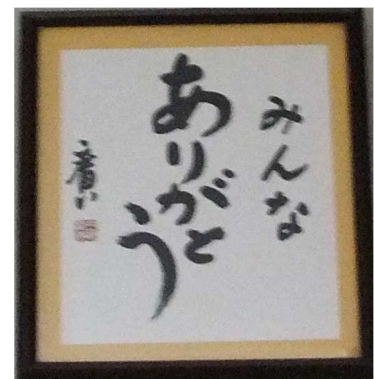 みんな
ありがとう